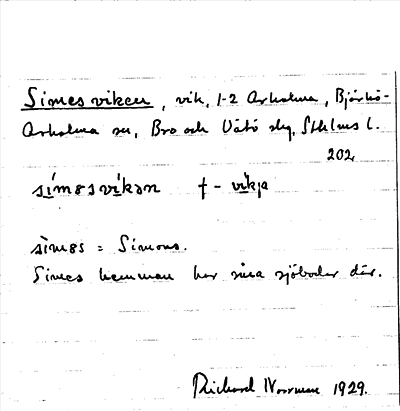 Simesviken, vik, 1-2 Arholma, Björkö-
Arholma sn, Bro och Vätö skg, Sthlms l.
202
sìmesvikən f - vikja
sìməs = Simons.
Simes hemman har sina sjöbodar där.
Richard Norrman 1929.